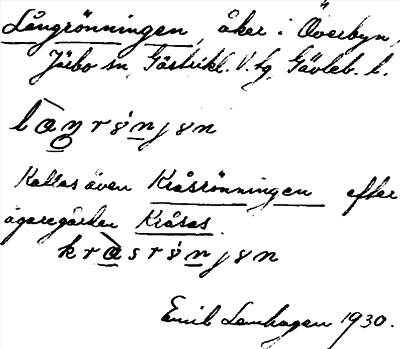 Långrönningen, åker i Överbyn,
Järbo sn, Gästrikl. V. tg, Gävleb. l.
Kallas även Kråsrönningen efter
ägaregården Kråsas.
Emil Lemhagen 1930.